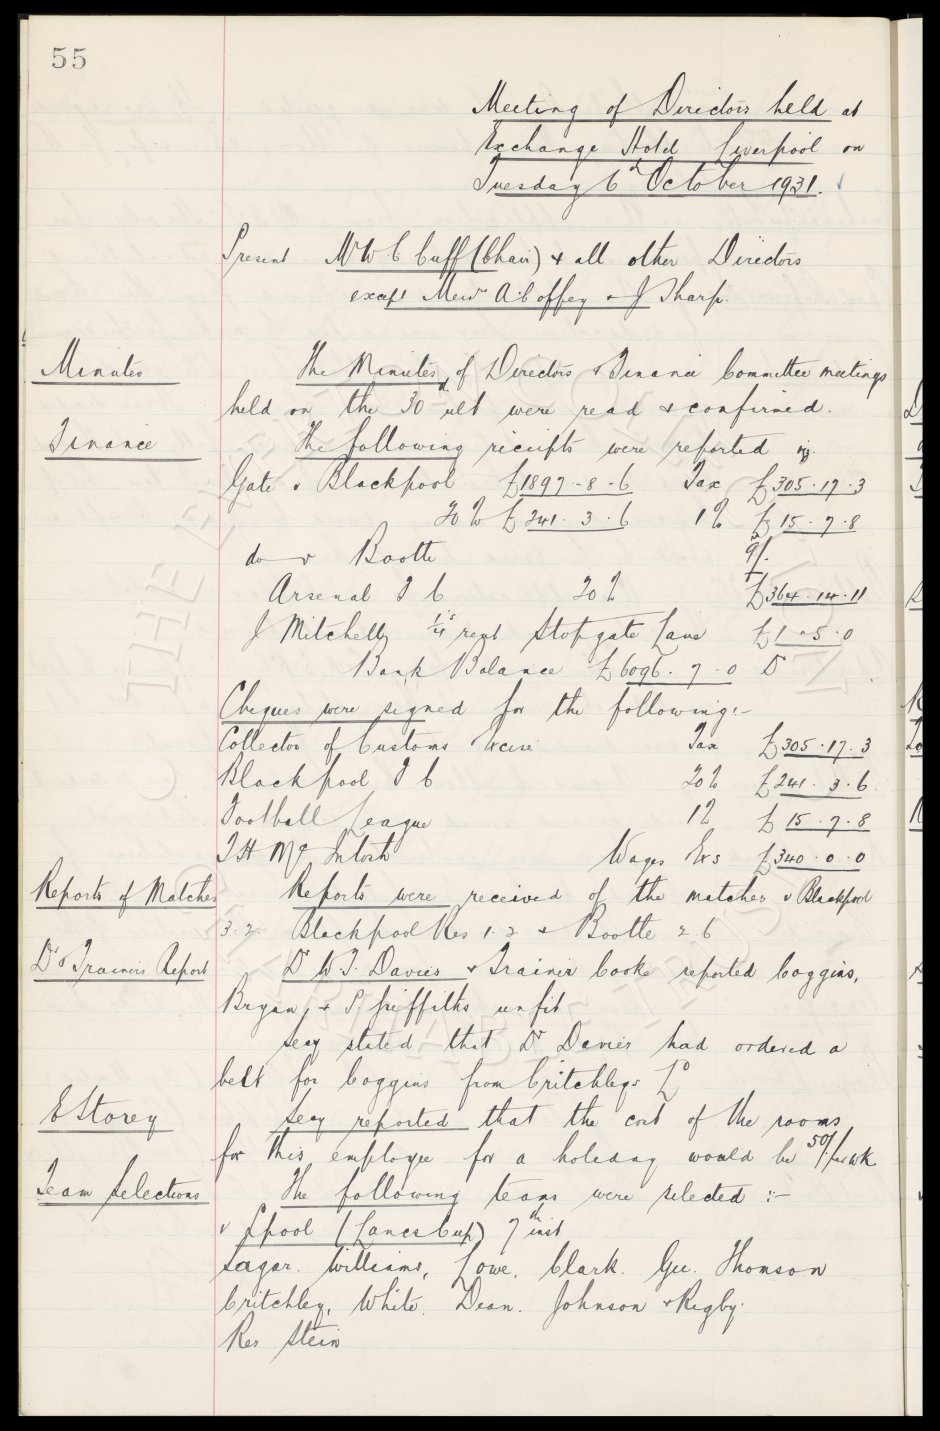 55
Meeting of Directors held at
Exchange Hotel Liverpool on
Tuesday 6th October 1931.
Present Mr W C Cuff (Chair) & all other Directors
except Messrs A Coffey & J Sharp.
Minutes
The Minutes of Directors & Finance Committee meetings
held on the 30th ult were read & confirmed.
Finance
The following receipts were reported viz.
Gate v Blackpool £1897-8-6 Tax £305.17.3
20% £241.3.6 1% £15.7.8
do v Bootle 9/-
Arsenal F C 20% £364.14.11
J Mitchell 1/4's rent Stopgate Lane £1.5.0
Bank Balance £6096.7.0 Dr
Cheques were signed for the following:-
Collector of Customs Excise Tax £305.17.3
Blackpool F C 20% £241.3.6
Football League 1% £15.7.8
T H McIntosh Wages Exs £340.0.0
Reports of Matches
Reports were received of the matches v Blackpool
3.2. Blackpool Res 1.2 & Bootle 2.6
Dr & Trainers Report
Dr W. F. Davies & Trainer Cooke reported Coggins,
Bryan, & P. Griffiths unfit
Secy stated that Dr Davies had ordered a
belt for Coggins from Critchleys Ld
E Storey
Secy reported that the cost of the rooms
for this employee for a holiday would be 50/- per wk
Team Selections
The following teams were selected :-
v L'pool (Lancs Cup) 7th inst
Sagar. Williams, Lowe. Clark. Gee. Thomson
Critchley, White. Dean. Johnson & Rigby.
Res Stein